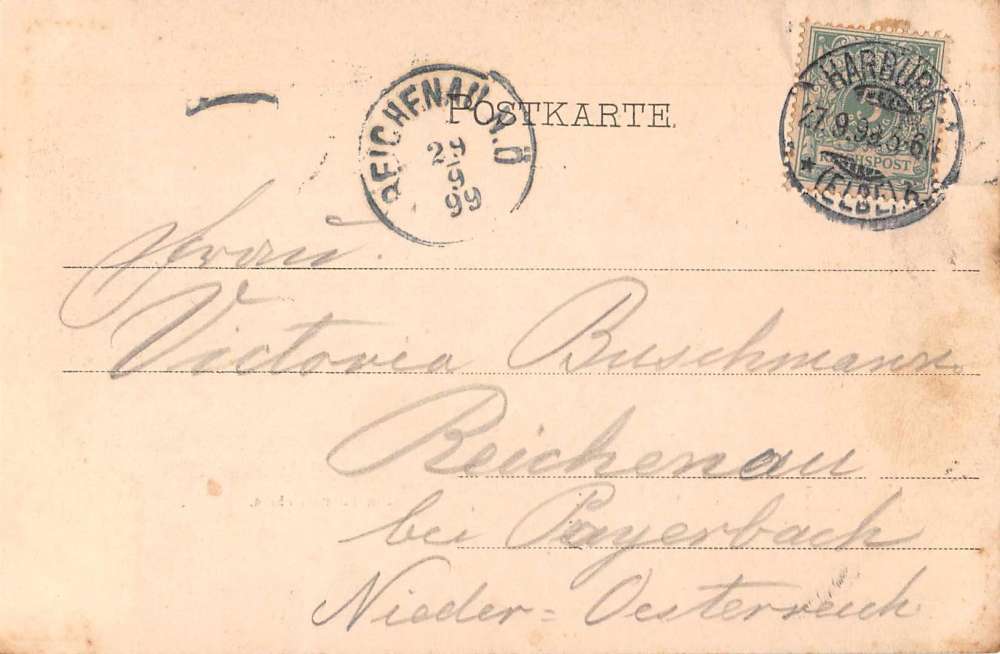 POSTKARTE
REICHENAU N.Ö
29
9
99
HARBURG
27.9.99.5-6N
* (ELBE)
5
REICHSPOST
Frau
Victoria Buschmann
Reichenau
bei Payerbach
Nieder=Oesterreich